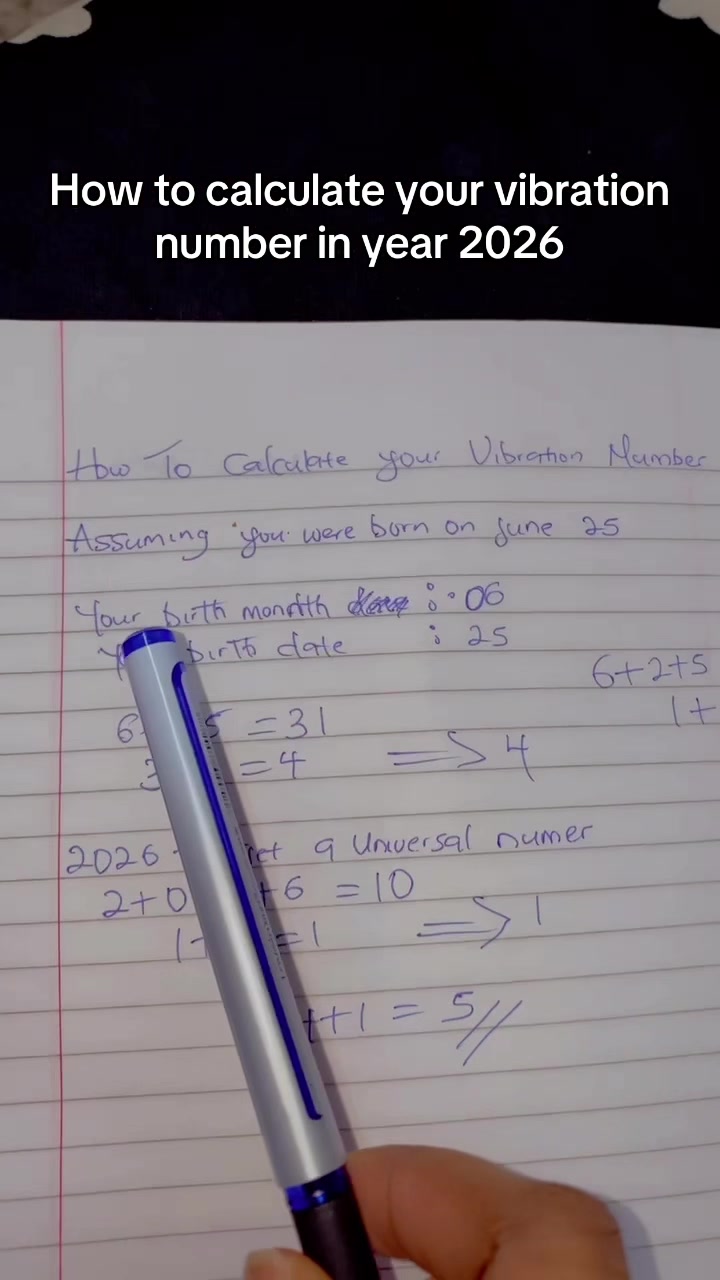 How to calculate your vibration
number in year 2026
How To Calculate your Vibration Number
Assuming you were born on June 25
Your birth monath : 06
birth date : 25
6+2+5
1+
6 5 =31
=4 => 4
2026 a universal numer
2+0 +6 =10
1+ =1 => 1
+1 = 5//